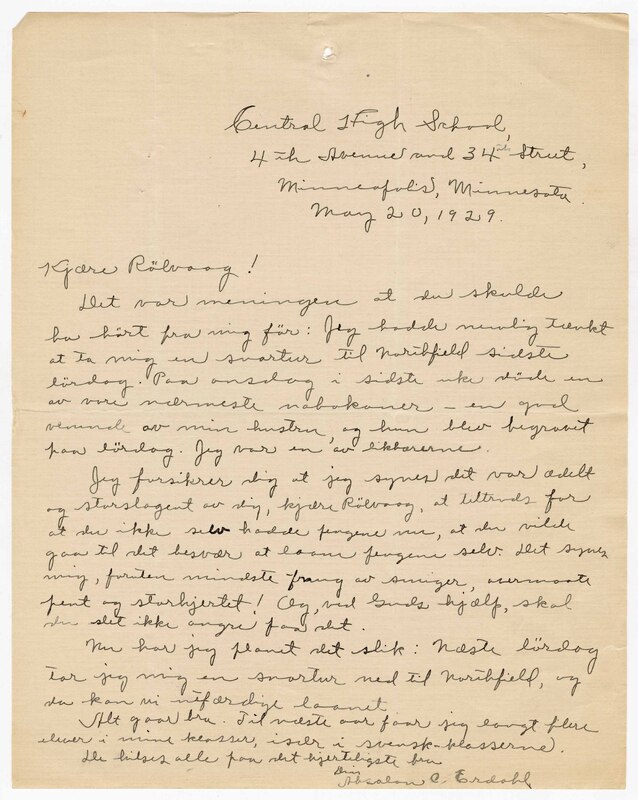 Central High School,
4th Avenue and 34th Street,
Minneapolis, Minnesota.
May 20, 1929.
Kjære Rölvaag!
Det var meningen at du skulde
ha hört fra mig för: Jeg hadde nemlig tænkt
at ta mig en snartur til Northfield sidste
lördag. Paa onsdag i sidste uke döde en
av vore nærmeste nabokoner – en god
veninde av min hustru, og hun blev begravet
paa lördag. Jeg var en av likbærerne.
Jeg forsikrer dig at jeg synes det var ædelt
og storslagent av dig, kjære Rölvaag, at tiltrods for
at du ikke selv hadde pengene nu, at du vilde
gaa til det besvær at laane pengene selv. Det synes
mig, foruten mindste frang av smiger, overmaate
pent og storhjertet! Og, ved Guds hjælp, skal
du slet ikke angre paa det.
Nu har jeg planet det slik: Næste lördag
tar jeg mig en snartur ned til Northfield, og
da kan vi utfærdige laanet.
Alt gaar bra. Til næste aar faar jeg langt flere
elever i mine klasser, især i svensk-klasserne.
De hilses alle paa det hjerteligste fra
Din
Absalon C. Erdahl